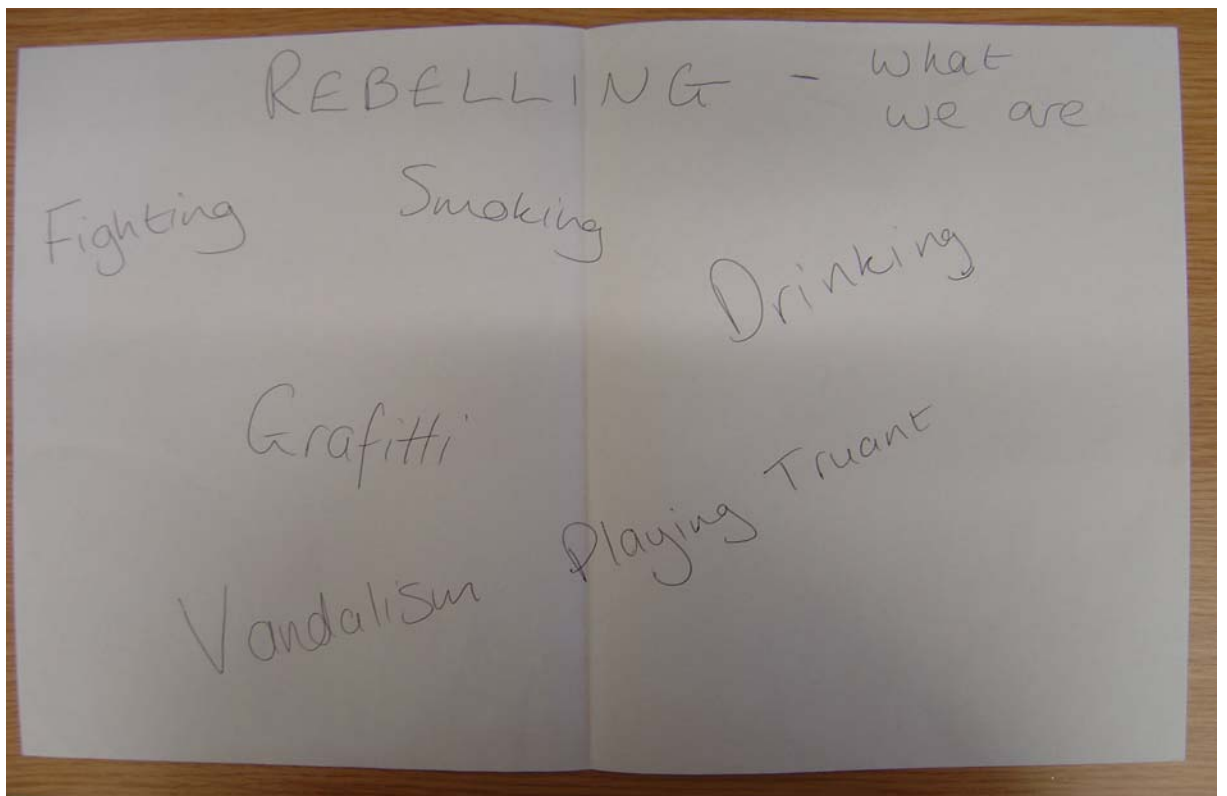 REBELLING - what
we are
Fighting
Smoking
Drinking
Grafitti
Playing Truant
Vandalism